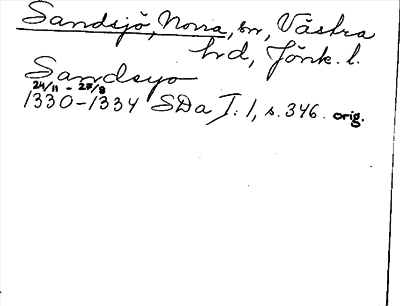 Sandsjö, Norra, sn, Västra
hd, Jönk. l.
Sandsyo
24/11 - 27/8
1330-1334 SDa I: 1, s. 346. orig.